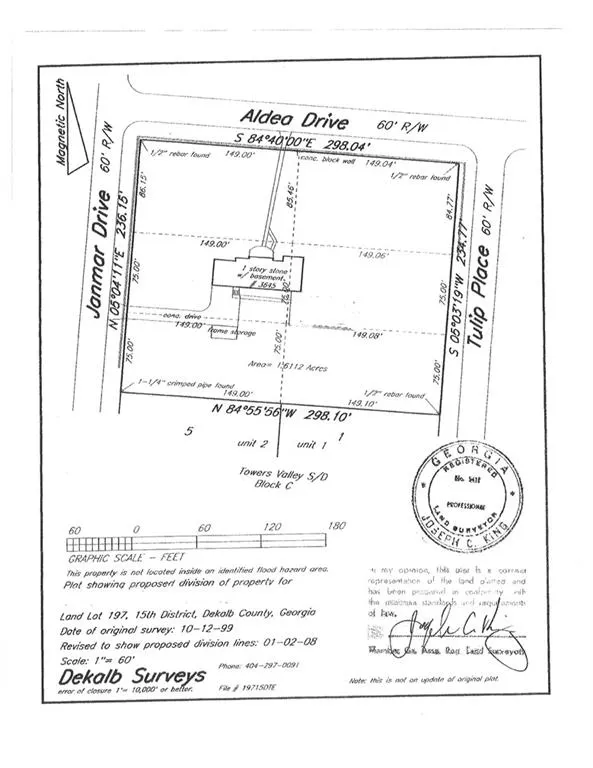 Magnetic North
Aldea Drive 60' R/W
S 84°40'00"E 298.04'
1/2" rebar found
149.00'
conc. block wall
149.04'
1/2" rebar found
Janmar Drive 60' R/W
N 05°04'11"E 236.15'
86.15'
85.46'
84.77'
Tulip Place 60' R/W
S 05°03'19"W 234.77'
149.00'
149.06'
1 story stone
w/ basement
# 3645
75.00'
75.00'
75.00'
conc. drive
149.00'
frame storage
149.08'
75.00'
75.00'
75.00'
Area= 1.6112 Acres
1-1/4" crimped pipe found
149.00'
149.10'
1/2" rebar found
N 84°55'56"W 298.10'
5
unit 2
unit 1
1
Towers Valley S/D
Block C
GEORGIA
REGISTERED
PROFESSIONAL
LAND SURVEYOR
JOSEPH C. KING
60 0 60 120 180
GRAPHIC SCALE - FEET
This property is not located inside an identified flood hazard area.
Plat showing proposed division of property for
In my opinion, this plat is a correct
representation of the land platted and
has been prepared in conformity with
the minimum standards and requirements
of law.
Land Lot 197, 15th District, Dekalb County, Georgia
Date of original survey: 10-12-99
Revised to show proposed division lines: 01-02-08
Scale: 1"= 60'
Dekalb Surveys
Phone: 404-297-0091
error of closure 1'= 10,000' or better.
File # 19715DTE
Land Surveyor
Note: this is not an update of original plat.